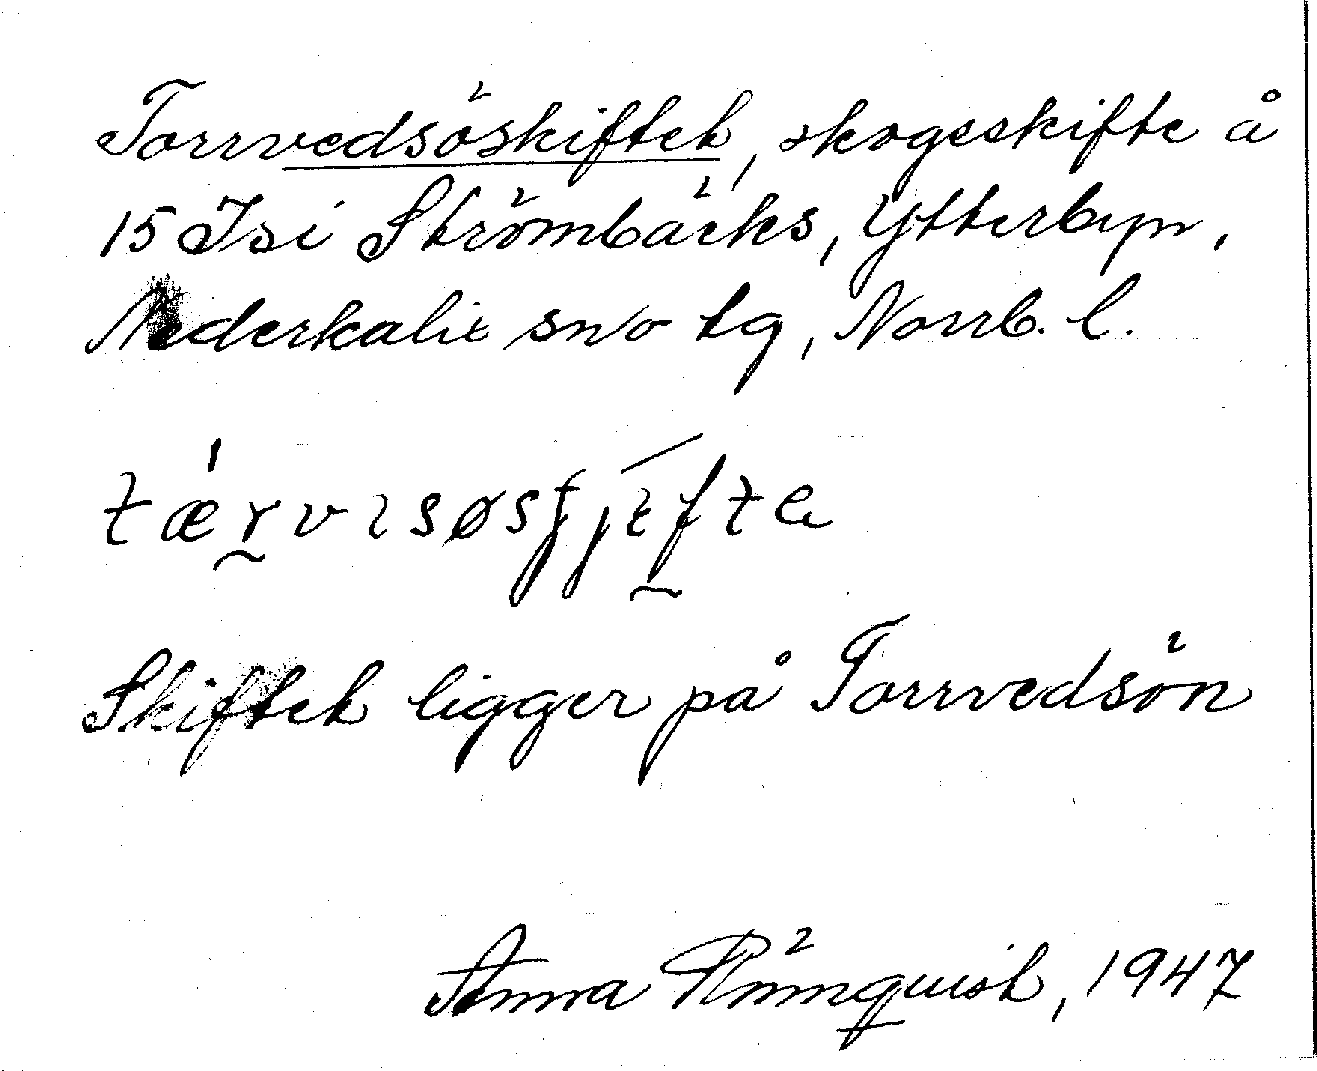 Torrvedsöskiftet, skogsskifte å
15 Isi Strömbäcks, Ytterbyn,
Nederkalix sn o tg, Norrb. l.
Skiftet ligger på Torrvedsön
Anna Rönnquist, 1947